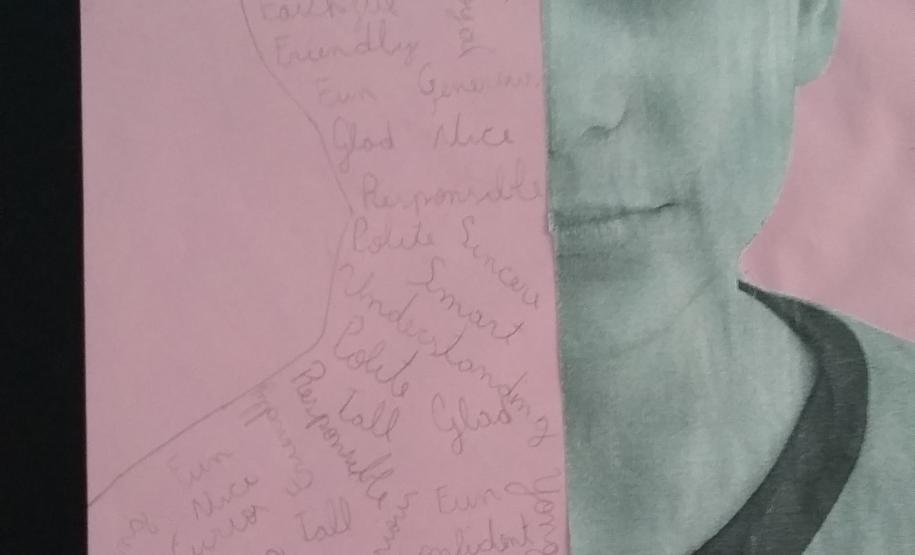 Faithful
Friendly
Fun Generous
Glad Nice
Responsible
Polite Sincere
Smart
Understanding
Polite
Tall Glad
Responsible
Friendly
Fun
Nice
Tall Fun Young